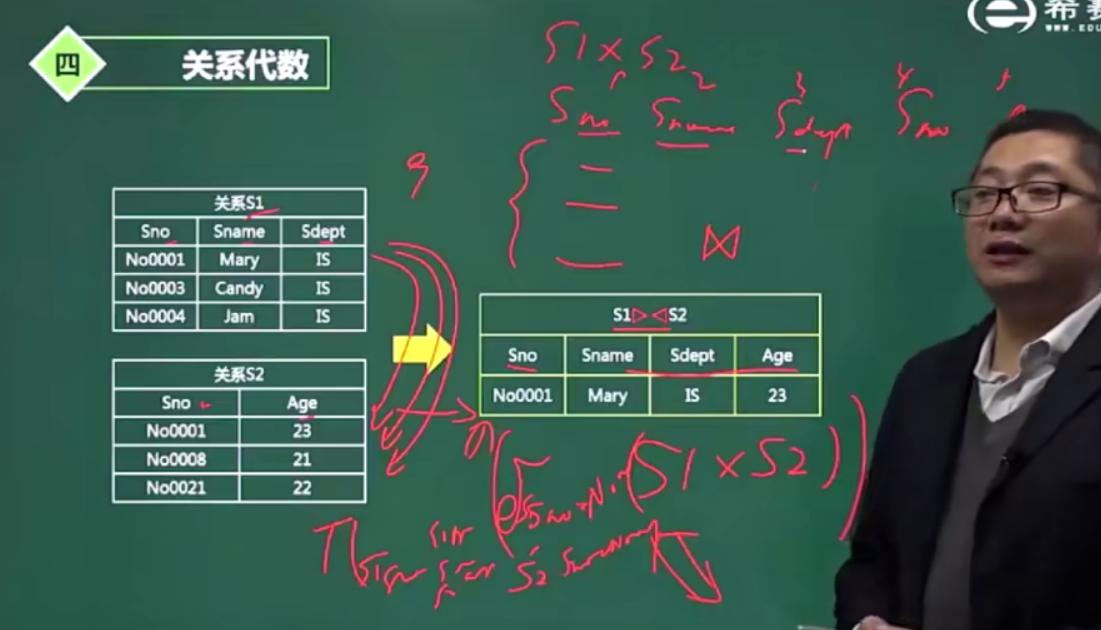 四 关系代数
希赛
S1×S2
1 2 3 4 5
Sno Sname Sdept Sno
9
关系S1
Sno Sname Sdept
No0001 Mary IS
No0003 Candy IS
No0004 Jam IS
⋈
S1▷◁S2
Sno Sname Sdept Age
No0001 Mary IS 23
关系S2
Sno Age
No0001 23
No0008 21
No0021 22
(S1×S2)
S2